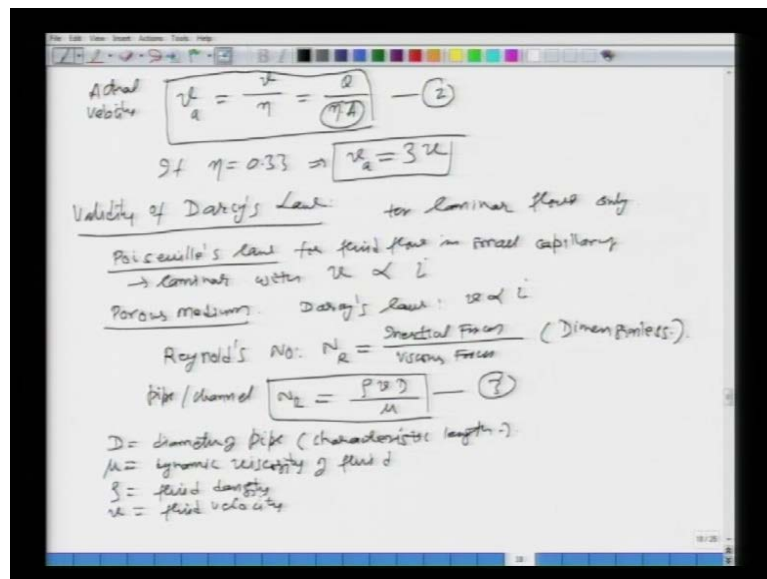 File Edit View Insert Actions Tools Help
Actual Velocity v_a = v/η = Q/(ηA) — (2)
If η = 0.33 ⇒ v_a = 3v
Validity of Darcy's Law: for laminar flow only
Poiseuille's law for fluid flow in small capillary
→ laminar with v ∝ i
Porous medium. Darcy's law: v ∝ i
Reynold's No: N_R = Inertial Forces / Viscous Forces (Dimensionless.)
pipe/channel N_R = ρvD/μ — (3)
D = diameter of pipe (characteristic length.)
μ = dynamic viscosity of fluid
ρ = fluid density
v = fluid velocity
18/28